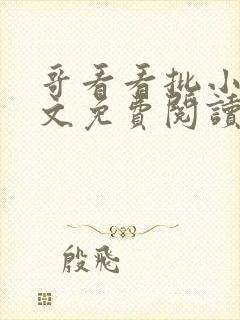 哥看看批小
文免費閱讀
殷飛